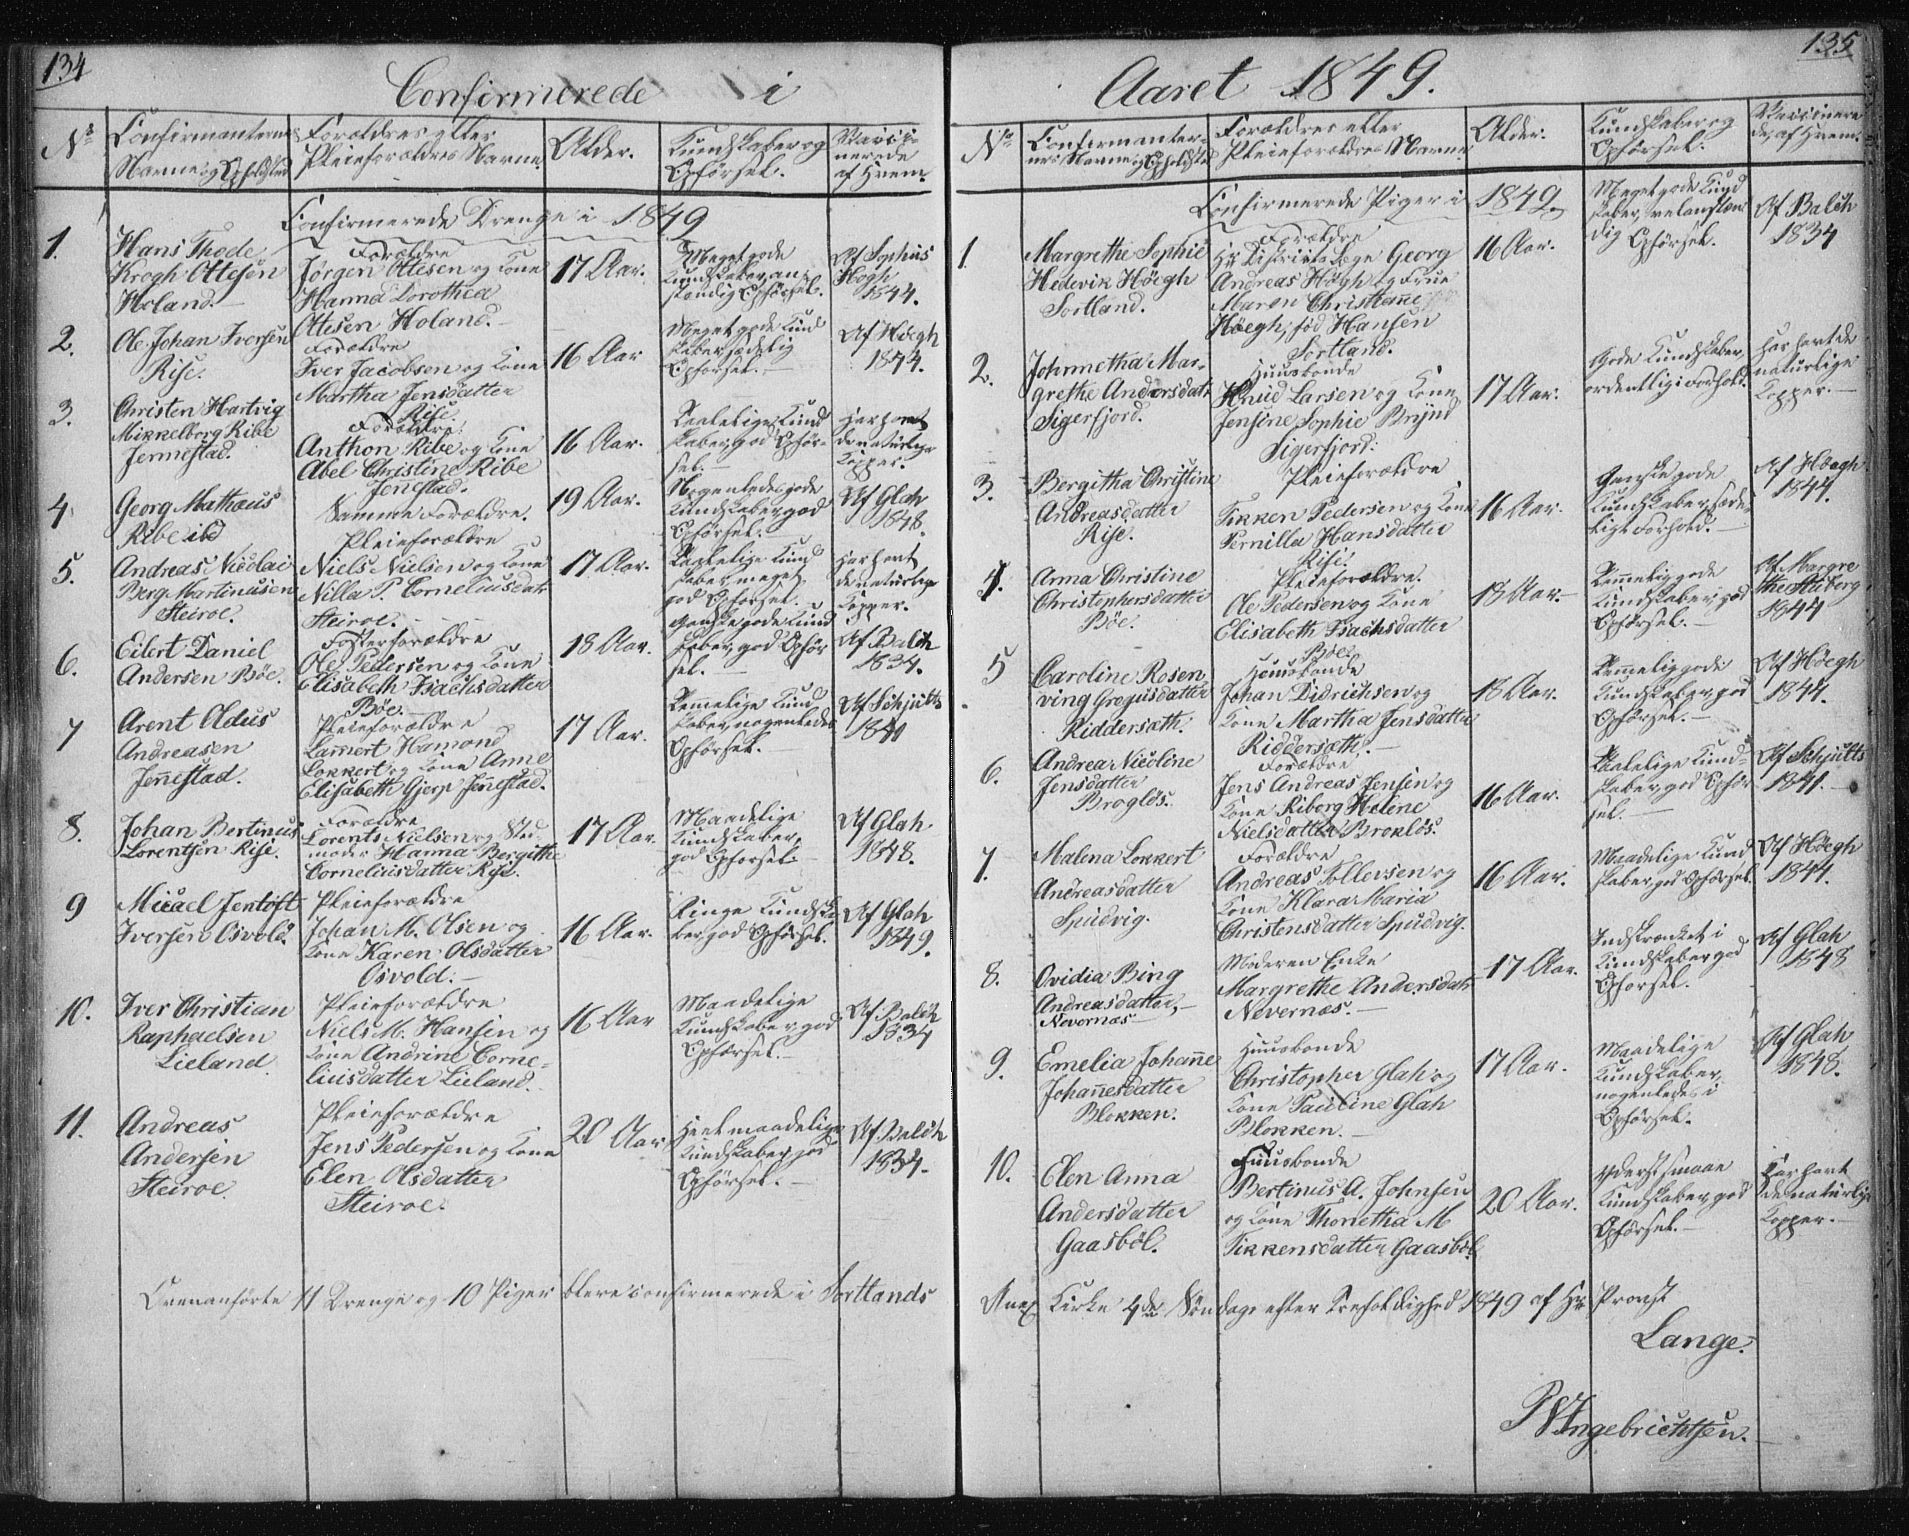 134
Confirmerede i
No
Confirmanternes
Navne og Opholdsted
Forældres eller
Pleieforældres Navne.
Alder.
Kundskaber og
Opførsel.
Vacci-
nerede
af Hvem.
Confirmerede Drenge i 1849
1.
Hans Thode
Krogh Ottesen
Holand.
Forældre
Jørgen Ottesen og Kone
Hanna Dorothea
Ottesen Holand.
17 Aar.
Meget gode
Kundskaber, an-
stændig Opførsel.
Af Sophus
Høgh
1844.
2.
Ole Johan Iversen
Rise.
Forældre
Iver Jacobsen og Kone
Martha Jensdatter
Rise.
16 Aar
Meget gode Kund
skaber sædelig
Opførsel.
Af Høegh
1844.
3.
Christen Hartvig
Mikkelborg Ribe
Jennestad.
Forældre.
Anthon Ribe og Kone
Abel Christine Ribe
Jenestad.
16 Aar.
Taalelige Kund
skaber, god Opfør-
sel.
Har havt
de naturlige
Kopper.
4
Georg Mathæus
Ribe ibd
Samme Forældre.
19 Aar.
Nogenledes gode
Kundskaber, god
Opførsel.
Af Glah
1848.
5.
Andreas Nicolai
Berg Martinusen
Steiroe.
Pleieforældre
Niels Nielsen og Kone
Nilla P. Corneliusdatr
Steiroe.
17 Aar.
Taalelige Kund
skaber meget
god Opførsel.
Har havt
de naturlige
Kopper.
6.
Eilert Daniel
Andersen Böe.
Fosterforældre
Ole Pedersen og Kone
Elisabeth Isachsdatter
Böe.
18 Aar.
Ganske gode Kund
skaber, god Opfør
sel.
Af Balch
1834.
7
Arent Aldus
Andreasen
Jennestad.
Pleieforældre
Lammert Hamond
Lokkert og Kone Anne
Elisabeth Gjerp Jennestad.
17 Aar.
Temmelige Kund
skaber, nogenledes
Opførsel.
Af Schjults
1841
8.
Johan Bertinus
Lorentsen Rise.
Forældre
Lorents Nielsen og Sted
moder Hanna Bergitha
Corneliusdatter Rise.
17 Aar.
Maadelige
Kundskaber,
god Opførsel.
Af Glah
1848.
9
Micael Jentoft
Iversen Osvold.
Pleieforældre
Johan M. Olsen og
Kone Karen Olsdatter
Osvold.
16 Aar.
Ringe Kundska
ber god Opførsel.
Af Glah
1849.
10.
Iver Christian
Raphaelsen
Lieland
Pleieforældre
Niels M. Hansen og
Kone Andrine Corne-
liusdatter Lieland.
16 Aar
Maadelige
Kundskaber, god
Opførsel.
Af Balch
1834
11.
Andreas
Andersen
Steiroe.
Pleieforældre
Jens Pedersen og Kone
Elen Olsdatter
Steiroe.
20 Aar
Heel maadelige
Kundskaber, god
Opførsel.
Af Balch
1834.
135
Aaret 1849.
No
Confirmanter-
nes Navne og Opholdsted
Forældres eller
Pleieforældres Navne.
Alder.
Kundskaber og
Opførsel.
Vaccinere
de, af Hvem.
Confirmerede Piger i 1849.
1
Margrethe Sophie
Hedevik Höegh
Sortland.
Forældre
Hr Distriktslæge Georg
Andreas Högh og Frue
Maren Christiane
Höegh, föd Hansen
Sortland.
16 Aar.
Meget gode Kund
skaber, velanstæn
dig Opførsel.
Af Balch
1834
2.
Johnnetha Mar-
grethe Andersdatr
Sigerfjord.
Huusbonde
Knud Larsen og Kone
Jensine Sophie Brynd
Sigerfjord.
17 Aar.
Gode Kundskaber,
ordentligt Forhold.
Har havt de
naturlige
Kopper.
3.
Bergitha Christine
Andreasdatter
Rise.
Pleieforældre
Tikken Pedersen og Kone
Pernilla Hansdatter
Rise.
16 Aar.
Ganske gode
Kundskaber, sæde-
ligt Forhold.
Af Höegh
1844.
4.
Anna Christine
Christophersdatter
Böe.
Pleieforældre.
Ole Pedersen og Kone
Elisabeth Isachsdatter
Böe.
18 Aar.
Temmelig gode
Kundskaber, god
Opførsel.
Af Margre
the Stüberg
1844
5
Caroline Rosen
ving Gregusdatter
Riddersæth.
Huusbonde
Johan Didrichsen og
Kone Martha Jensdatter
Riddersæth.
18 Aar.
Temmelig gode
Kundskaber, god
Opførsel.
Af Höegh
1844.
6.
Andrea Nicoline
Jensdatter
Broglös.
Forældre
Jens Andreas Jensen og
Kone Riborg Heline
Nielsdatter Broklös.
16 Aar.
Taalelige Kund-
skaber, god Opfør
sel.
Af Schjults
1841.
7.
Malena Lokkert
Andreasdatter
Spudvig.
Forældre
Andreas Tollevsen og
Kone Klara Maria
Christensdatter Spudvig.
16 Aar.
Maadelige Kund
skaber, god Opførsel.
Af Höegh
1844.
8.
Ovidia Bing
Andreasdatter,
Nevernæs
Moderen Enke
Margrethe Andersdatr
Nevernæs.
17 Aar.
Indskrænket i
Kundskaber, god
Opførsel.
Af Glah
1848
9.
Emelia Johanne
Johannesdatter
Blokken.
Huusbonde
Christopher Glah og
Kone Pauline Glah
Blokken.
17 Aar.
Maadelige
Kundskaber,
nogenledes i
Opførsel.
Af Glah
1848.
10.
Elen Anna
Andersdatter
Gaasböl.
Huusbonde
Bertinus A. Johnsen
og Kone Thonetha M
Tikkensdatter Gaasböl
20 Aar.
Yderst smaae
Kundskaber, god
Opførsel.
Har havt
de naturlige
Kopper.
Ovenanførte 11 Drenge og 10 Piger bleve confirmerede i Sortlands Anex Kirke 4de Søndag efter Trefoldighed 1849 af Hr Provst
Lange.
Ingebrichtsen.